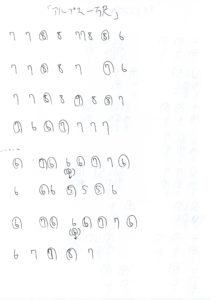 「アルプス一万尺」
7 7 ⑧ 8 7 8 ⑧ 6
7 7 ⑧ 8 7 ⑦ 6
7 7 ⑧ 8 ⑦ 8 ⑧ 7
⑦ 6 ⑥ ⑦ 7 7 7
⑥ ⑦⑥ 6 ⑥ ⑦ 7 ⑥
6 ⑥6 ⑤ 5 ⑤ 6
⑥ ⑦⑥ 6 ⑥ ⑦ 7 ⑥
6 7 ⑦ ⑧ 7